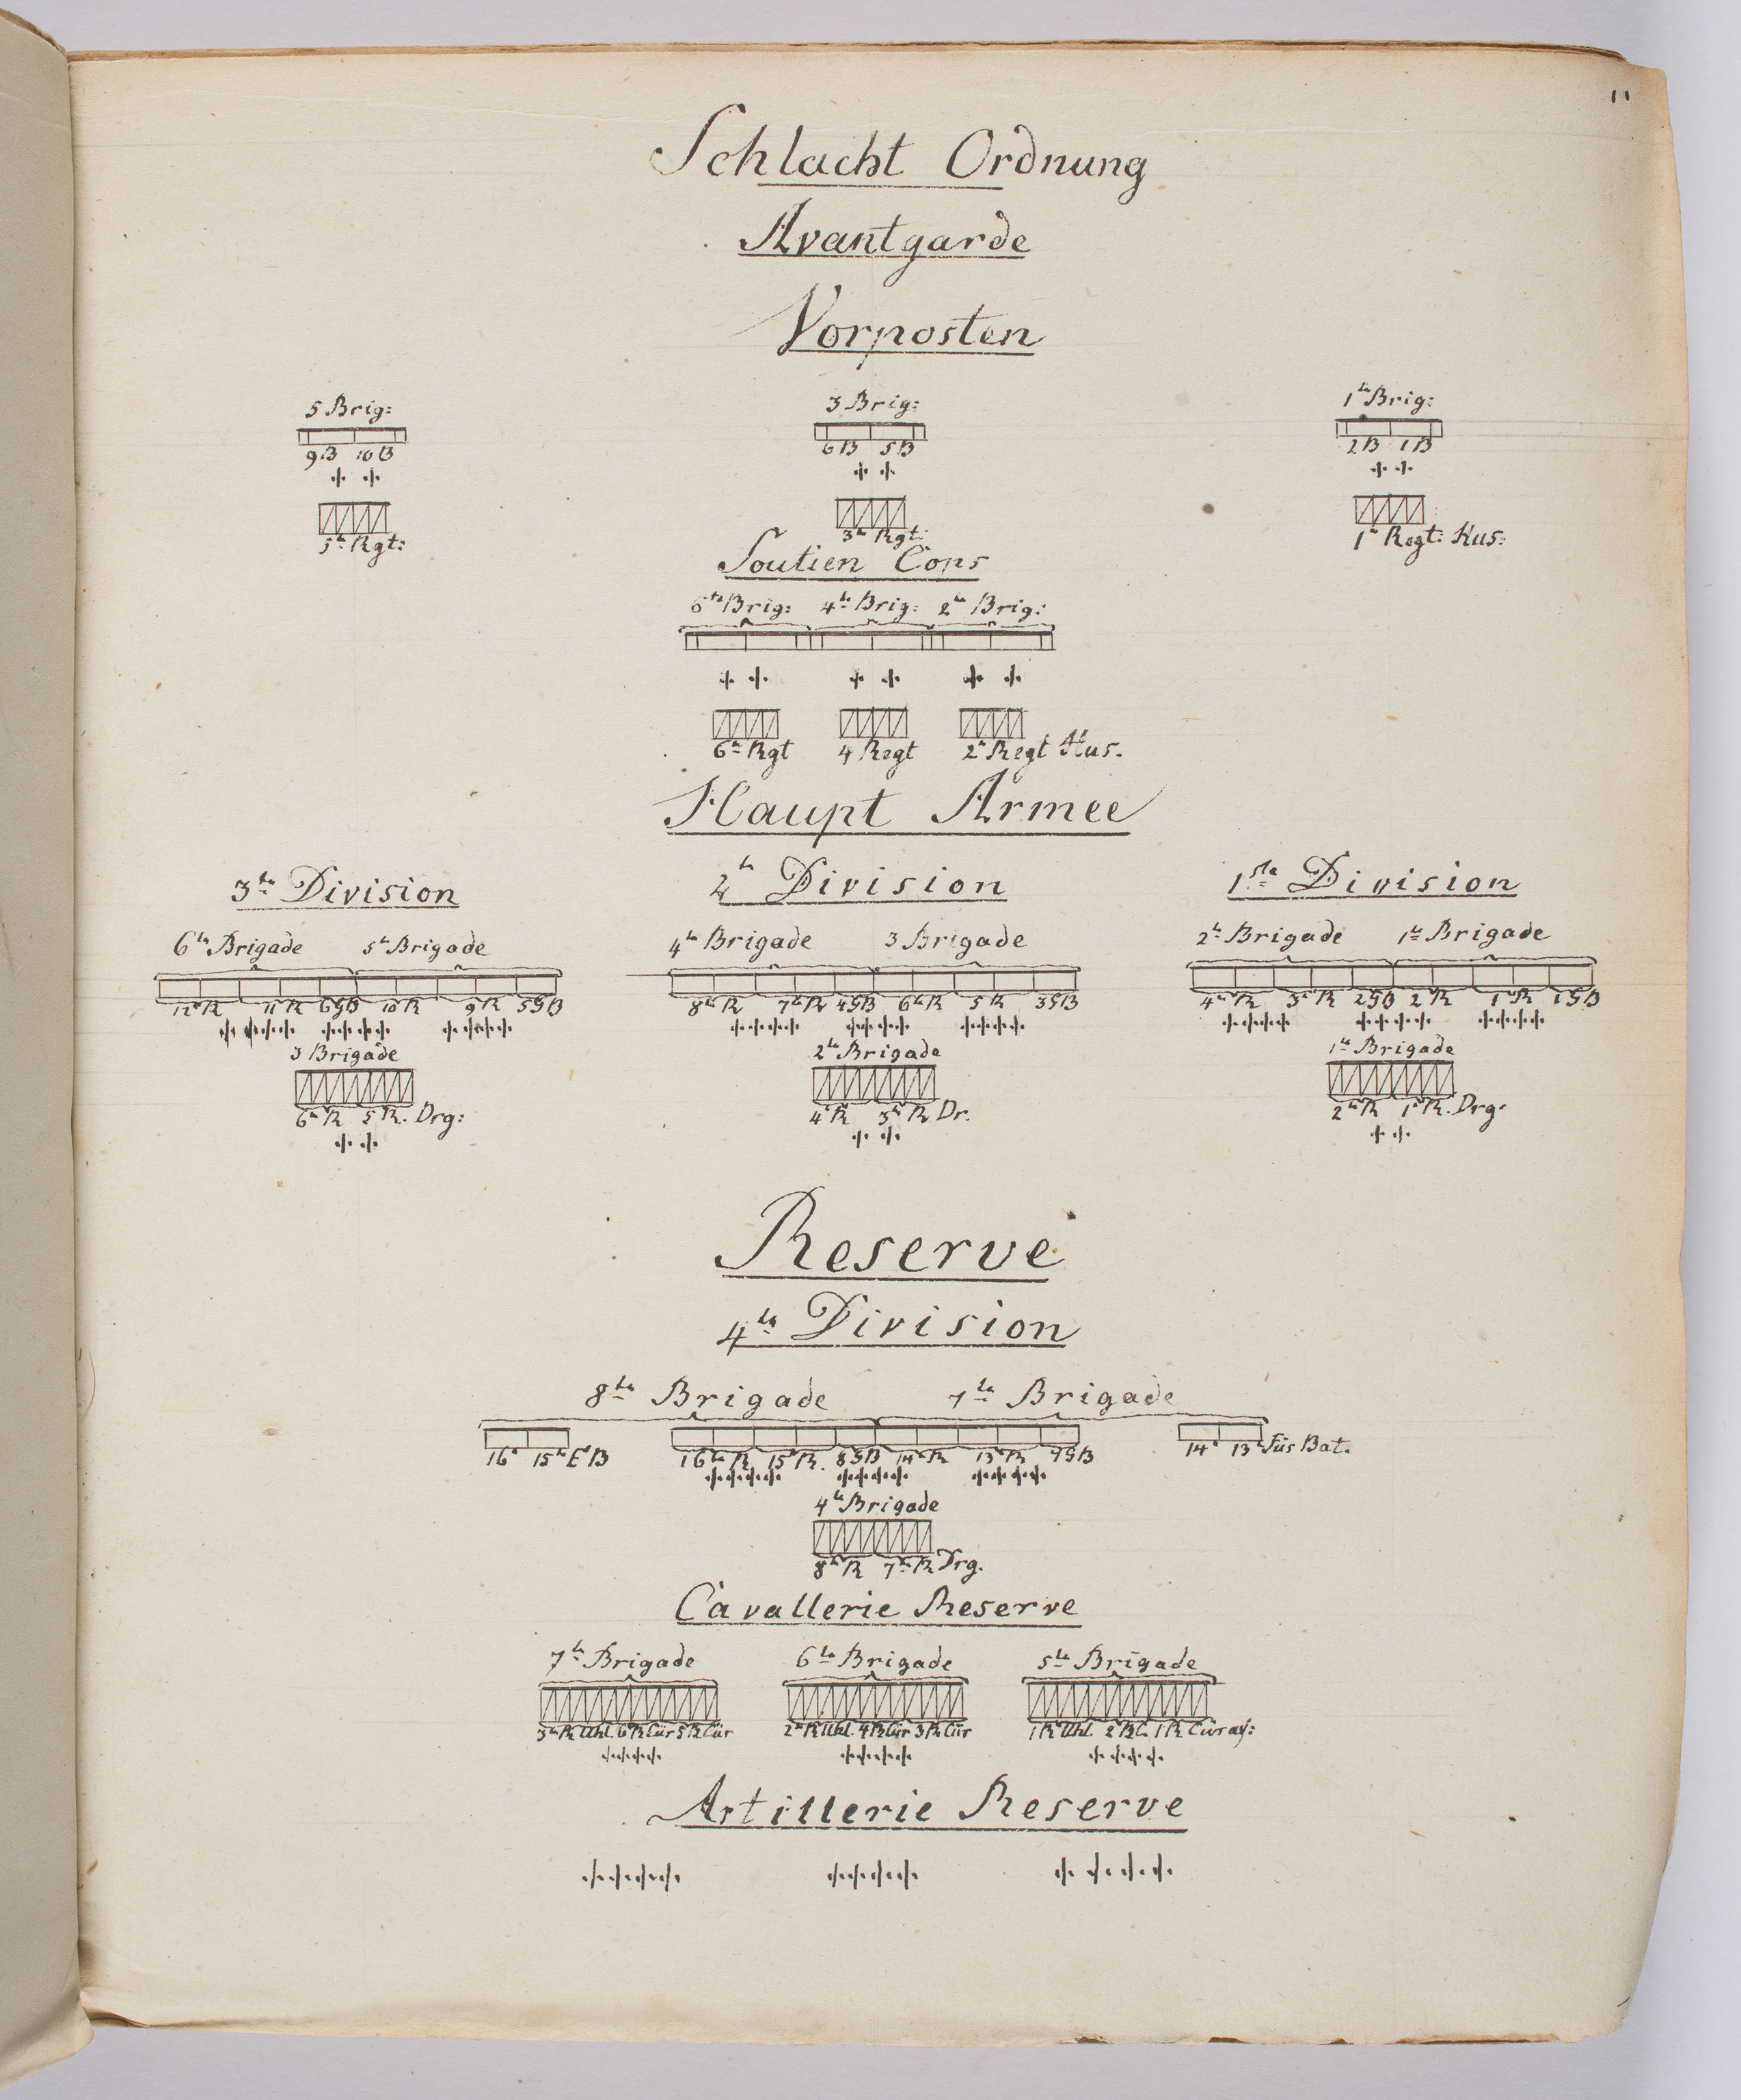 11
Schlacht Ordnung
Avantgarde
Vorposten
5 Brig: 3 Brig: 1te Brig:
9 B 10 B 6 B 5 B 2 B 1 B
5te Rgt: 3te Rgt: 1te Regt: Hus:
Soutien Cops
6te Brig: 4te Brig: 2te Brig:
6te Rgt 4 Regt 2te Regt Hus.
Haupt Armee
3te Division 2te Division 1ste Division
6te Brigade 5te Brigade 4te Brigade 3 Brigade 2te Brigade 1te Brigade
12te R 11te R 6 G B 10te R 9te R 5 G B 8te R 7te R 4 G B 6te R 5 R 3 G B 4te R 3te R 2 G B 2te R 1te R 1 G B
3 Brigade 2te Brigade 1te Brigade
6te R 5 R. Drg: 4te R 3te R Dr. 2te R 1te R. Drg:
Reserve
4te Division
8te Brigade 7te Brigade
16te 15te E B 16te R 15te R. 8 G B 14te R 13te R 7 G B 14te 13te Füs Bat.
4te Brigade
8te R 7te R Drg.
Cavallerie Reserve
7te Brigade 6te Brigade 5te Brigade
3te R Uhl. 6 R Cür 5 R Cür 2te R Uhl. 4 R Cür 3 R Cür 1 R Uhl. 2 R C. 1 R Cüras:
Artillerie Reserve